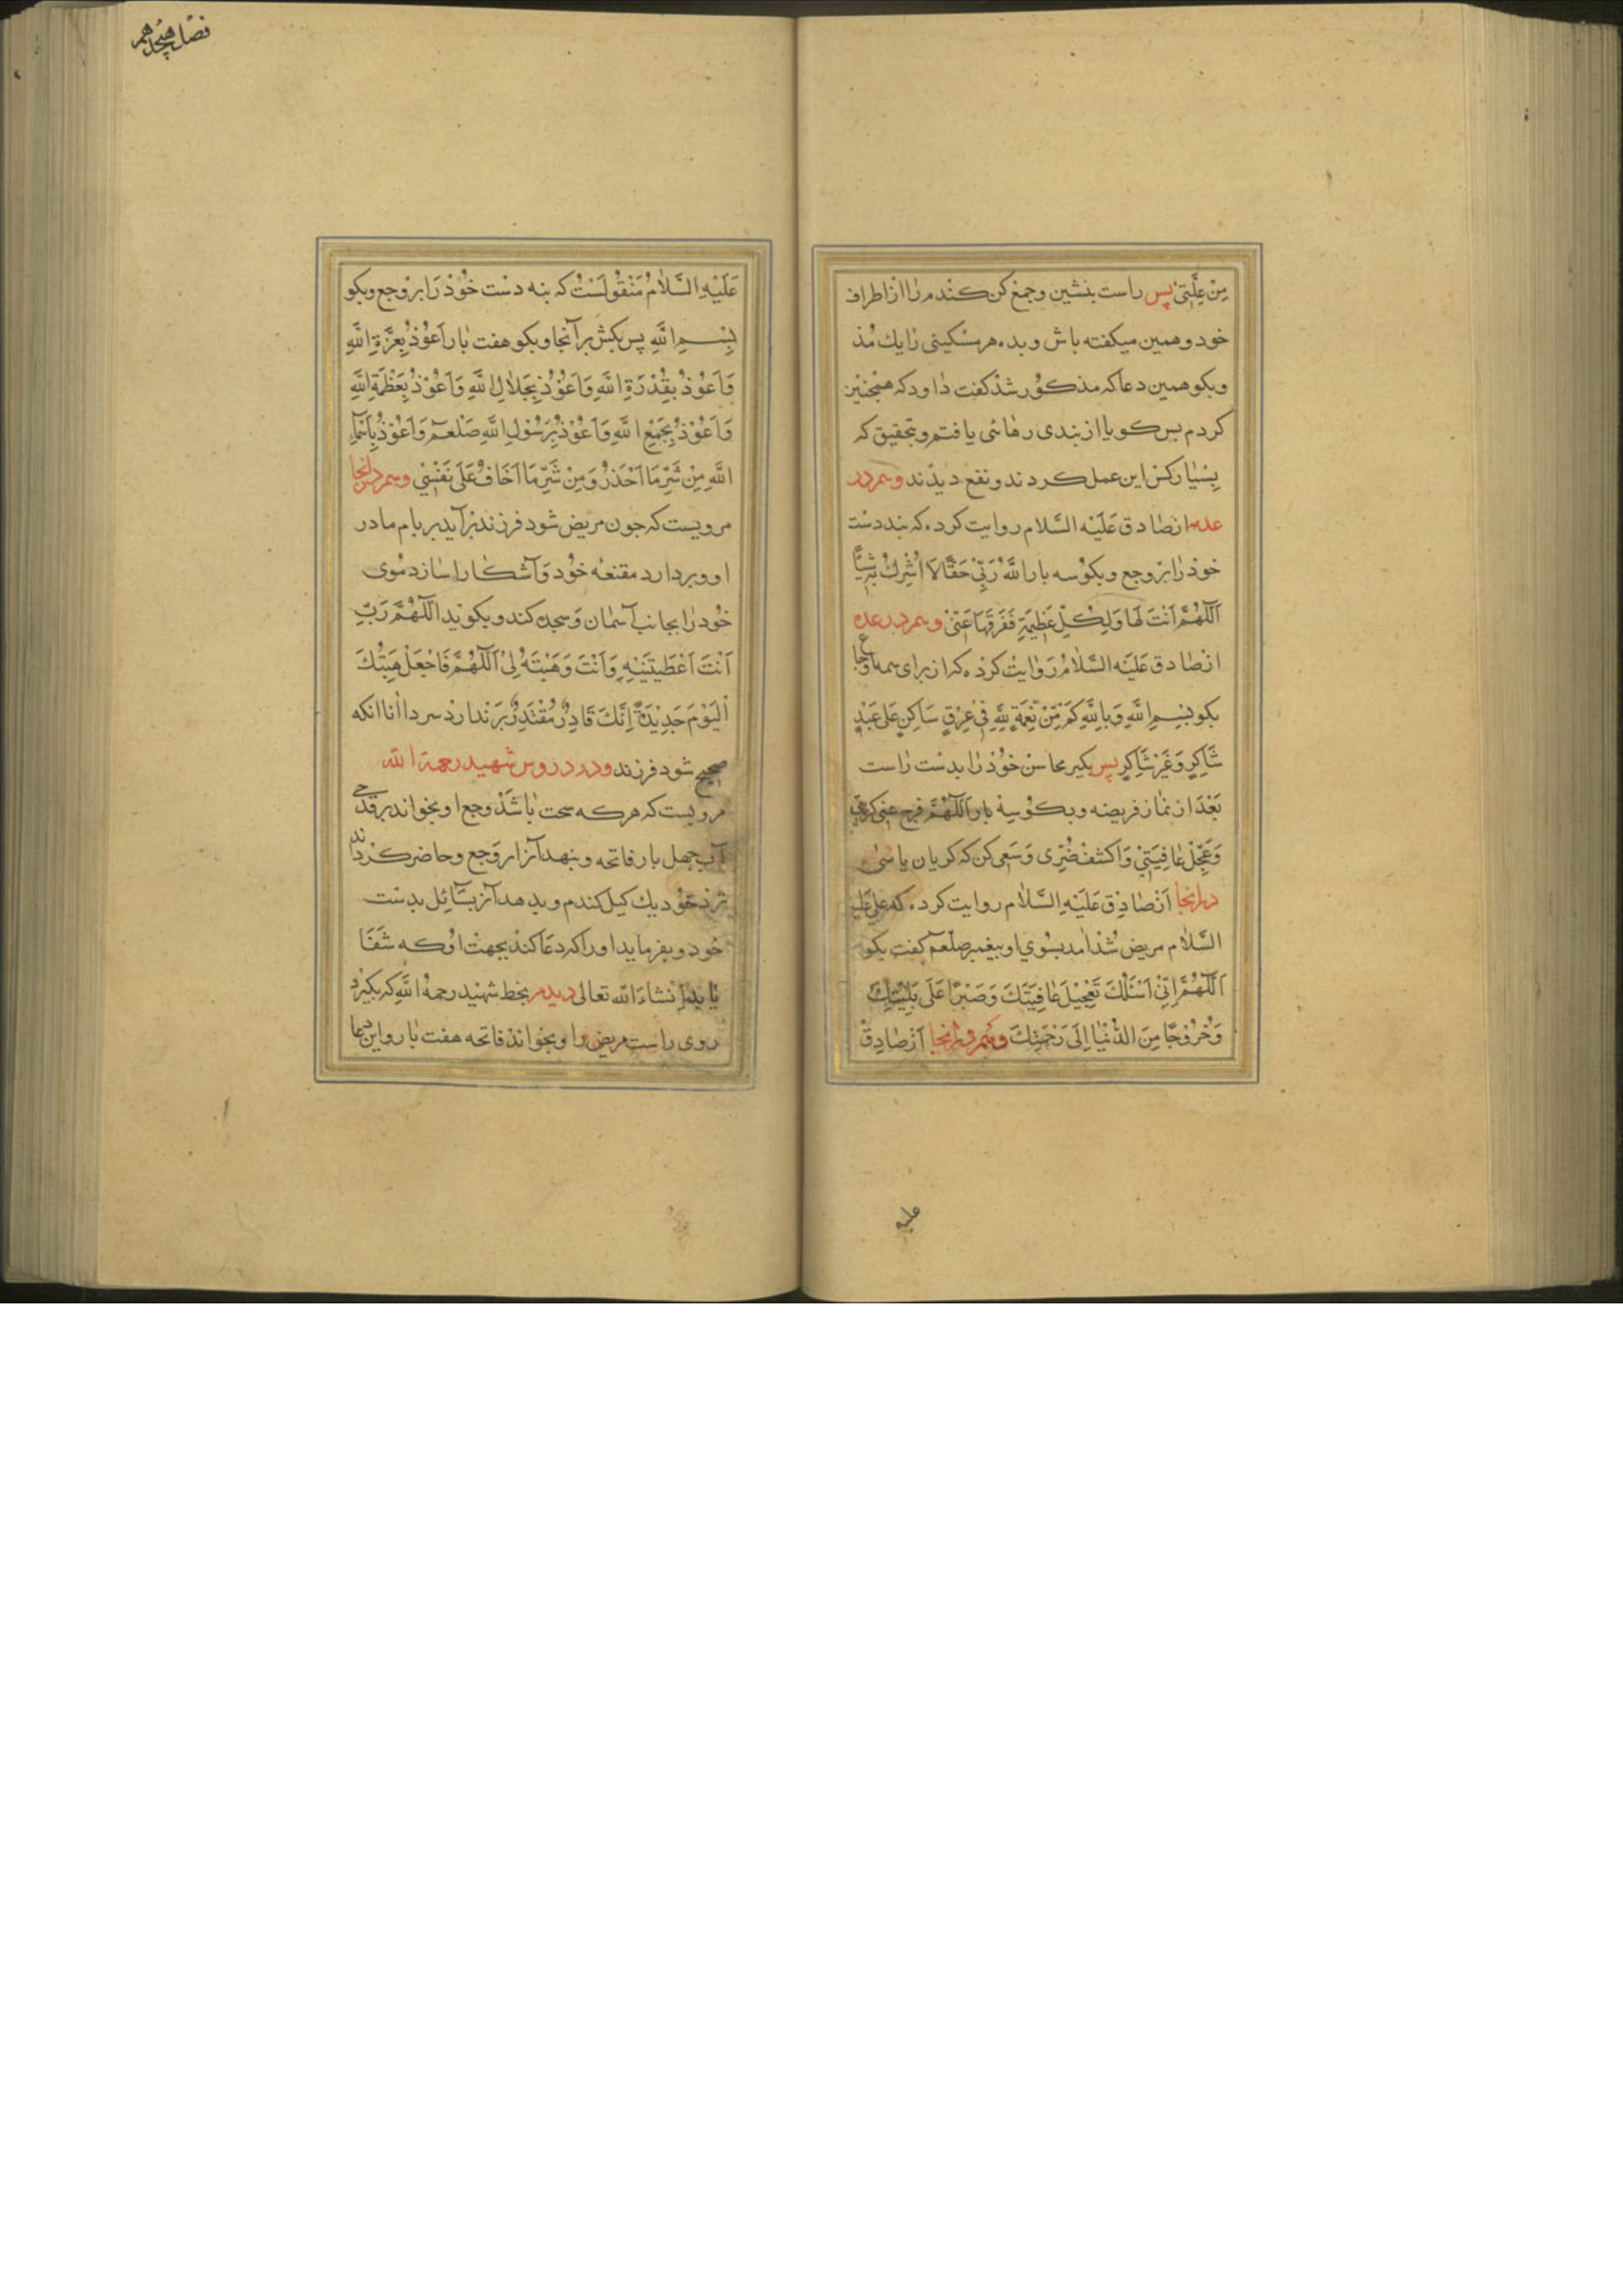 مِنْ عِلَّتِیْ پس راست بنشین وجمع کن کندم را از اطراف
خود و همین میکفته باش و بده هر مسکینی را یك مُد
و بکو همین دعا که مذکور شد کفت داود که همچنین
کردم بس کویا از بندی رهائی یافتم و بتحقیق که
بسیار کس این عمل کردند و نفع دیدند وهم در
عده از صادق عَلَیْه السَّلام روایت کرده که بنه دست
خود را بر وجع و بکو سه بار اَللَّهُ رَبِّیْ حَقًّا لاَ اُشْرِكُ بِهِ شَیْئًا
اَللّٰهُمَّ اَنْتَ لَهَا وَلِکُلِّ عَظِیْمَةٍ فَفَرِّقْهَا عَنّیْ وهم در عده
از صادق عَلَیْه السَّلامُ روایت کرده که از برای همه اوجاع
بکو بِسْمِ اللَّهِ وَبِاللَّهِ کَمْ مِّنْ نِعْمَةٍ لِلَّهِ فِیْ عِرْقٍ سَاکِنٍ عَلَی عَبْدٍ
شَاکِرٍ وَغَیْرِ شَاکِرٍ پس بکیر محاسن خود را بدست راست
بعد از نماز فریضه و بکو سه بار اَللّٰهُمَّ فرج عنی کربتی
وَعَجِّلْ عَافِیَتِیْ وَاکشفْ ضُرّی وَسَعی کن که کریان باشی
در انجا از صادِق عَلَیْهِ السَّلام روایت کرده که علی علیه
السَّلام مریض شد امد بسوی او پیغمبر صلّعم کفت بکو
اَللّٰهُمَّ اِنّیْ اَسْئَلُكَ تَعْجِیْلَ عَافِیَتَكَ وَصَبْرًا عَلَی بَلِیَّتِكَ
وَخُرُوْجًا مِنَ الدُّنْیَا اِلَی رَحْمَتِكَ وهم در انجا از صادِق
علیه
فصل هجدهم
عَلَیْهِ السَّلامُ منقولست که بنه دست خود را بر وجع و بکو
بِسْمِ اللَّهِ پس بکش بر آنجا و بکو هفت بار اَعُوْذُ بِعِزَّةِ اللَّهِ
وَاَعُوْذُ بِقُدْرَةِ اللَّهِ وَاَعُوْذُ بِجَلَالِ اللَّهِ وَاَعُوْذُ بِعَظَمَةِ اللَّهِ
وَاَعُوْذُ بِجَمْعِ اللَّهِ وَاَعُوْذُ بِرَسُوْلِ اللَّهِ صَلْعَمْ وَاَعُوْذُ بِاَسْمَآءِ
اللَّهِ مِنْ شَرِّ مَا اَحْذَرُ وَمِنْ شَرِّ مَا اَخَافُ عَلَی نَفْسِیْ وهم در انجا
مرویست که جون مریض شود فرزند بر آید بر بام مادر
او و بردارد مقنعه خود و آشکارا سازد موی
خود را بجانب آسمان و سجده کند و بکوید اَللّٰهُمَّ رَبِّ
اَنْتَ اَعْطَیْتَنِیْهِ وَاَنْتَ وَهَبْتَهُ لِیْ اَللّٰهُمَّ فَاجْعَلْ هِبَتَكَ
اَلْیَوْمَ جَدِیْدَةً اِنَّكَ قَادِرٌ مُقْتَدِرٌ برندارد سر دا انا انکه
صحیح شود فرزند ودر دروس شهید رحمة الله
مرویست که هر که سخت باشد وجع او بخواند بر قدحی
آب جهل بار فاتحه و بنهد آنرا بر وجع و حاضر کرداند
نزد خود یك کیل کندم و بدهد آنرا بسائل بدست
خود و بفرماید او را که دعا کند بجهت او که شفا
یابد اِنشاءَ الله تعالی دیدم بخط شهید رحمهُ اللَّهِ که بکیرد
روی راست مریض را و بخواند فاتحه هفت بار و این دعا